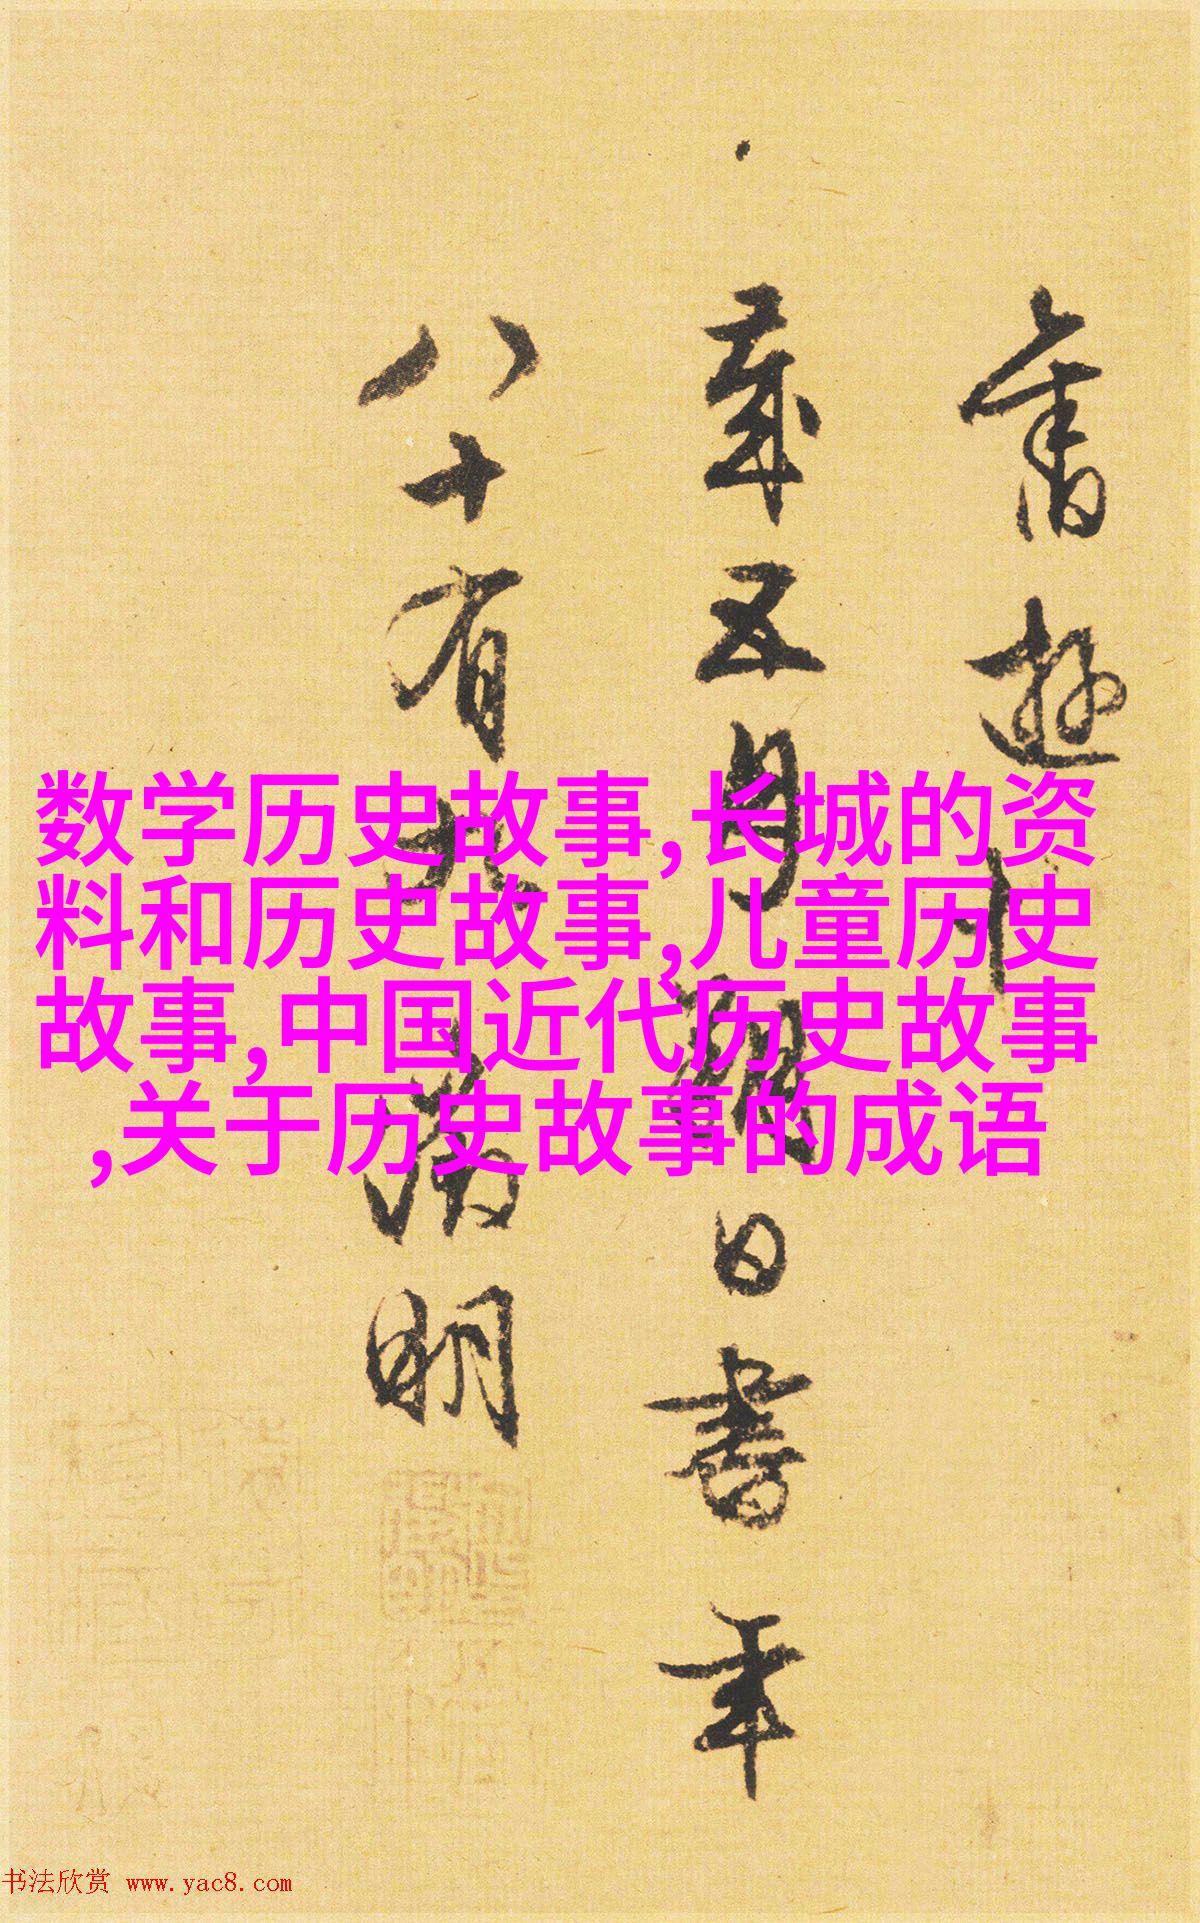 数学历史故事,长城的资
料和历史故事,儿童历史
故事,中国近代历史故事
,关于历史故事的成语
舊遊
歲五月朔日書年
八十有九徵明
书法欣赏 www.yac8.com